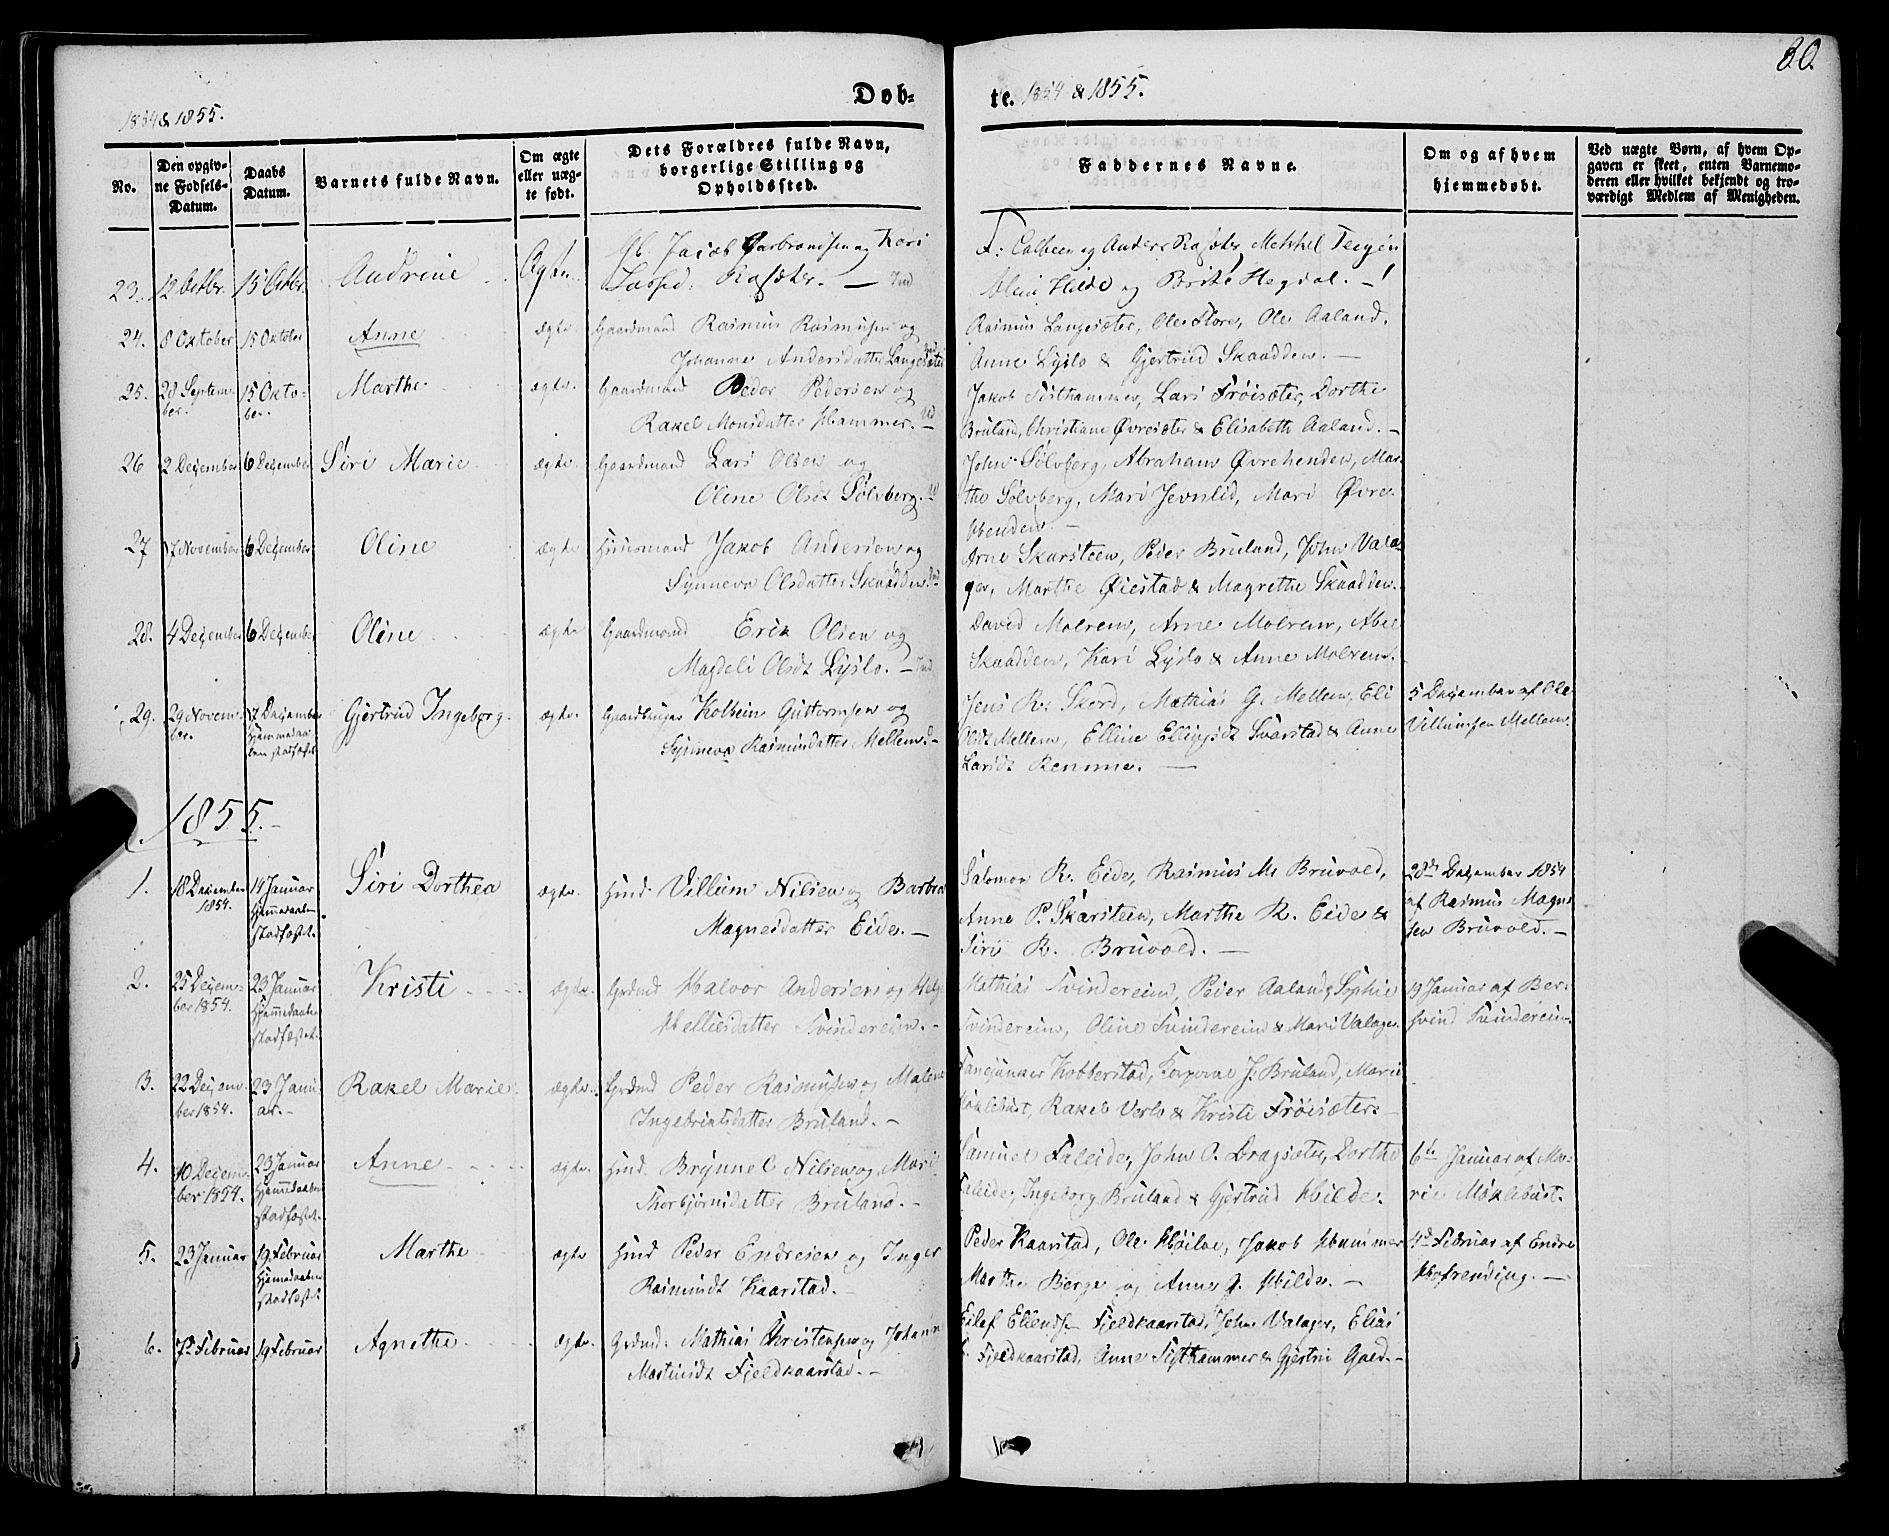 80.
1854 & 1855.
Døb-
te. 1854 & 1855.
No.
Den opgiv-
ne Fødsels-
Datum.
Daabs
Datum.
Barnets fulde Navn.
Om ægte
eller uæg-
te født.
Dets Forældres fulde Navn,
borgerlige Stilling og
Opholdssted.
Faddernes Navne.
Om og af hvem
hjemmedøbt.
Ved uægte Børn, af hvem Op-
gaven er skeet, enten Barnemo-
deren eller hvilket bekjendt og tro-
værdigt Medlem af Menigheden.
23. 12 Octbr. 15 Octbr. Andrine Ægte. Jacob og Kari
F: og Anders
Hilde og Hegdal. -
24. 8 October 15 October Anne ægte Gaardmand Rasmus Rasmusen og
Johanne Andersdatter Langesæter
Rasmus Langesæter, Ole Flore, Ole Aaland,
Anne Lyslo & Gjertrud Skaadden. -
25. 28 Septem-
ber. 15 Octo-
ber. Marthe ægte. Gaardmand Peder Pedersen og
Rakel Monsdatter Hammer. -
Jakob Fisthammer, Lars Frøisæter, Dorthe
Bruland, Christiane Øvresæter & Elisabeth Aaland. -
26 2 December 6 December Siri Marie ægte. Gaardmand Lars Olsen og
Oline Olsdt Sølvberg. -
John Sølvberg, Abraham Øvrehenden, Mar-
the Sølvberg, Mari Jevnlid, Mari Øvre-
henden. -
27 17 November 6 December Oline ægte Huusmand Jakob Andersen og
Synneva Olsdatter Skaadden.
Arne Skarsteen, Peder Bruland, John Vala-
ger, Marthe Øiestad & Magrethe Skaadden.
28. 4 December 6 December Oline ægte Gaardmand Erik Olsen og
Magdeli Olsdt Lyslo. -
David Molrem, Arne Molrem, Abel
Skaadden, Kari Lyslo & Anne Molrem.
29. 29 Novem-
ber. 17 December
Hjemmedaa-
ben stadfæst Gjertrud Ingeborg. ægte. Gaardbruger Kolbein Guttormsen og
Synneva Rasmusdatter Mellem. -
Jens R. Skord, Mathias G. Mellem, Eli
Olsdt Mellem, Elline Svarstad & Anne
Larsdt Remme. -
5 December af Ole
Villumsen Mellem
1855. -
1. 18 December
1854. 14 Januar
Hjemmedaaben
stadfæstet. Siri Dorthea ægte. Husmd. Villum Nilsen og Barbra
Magnesdatter Eide. -
Salomon R. Eide, Rasmus M. Bruvold,
Anne P. Skarsteen, Marthe R. Eide &
Siri R. Bruvold. -
28de December 1854
af Rasmus Magne-
sen Bruvold. -
2. 25 Decem-
ber 1854. 23 Januar
Hjemmedaaben
stadfæstet. Kristi ægte Grdmd Halvor Andersen og
Helliesdatter Tvindereim. -
Mathias Tvindereim, Peder Aaland, Sophie
Tvindereim, Oline Tvindereim & Mari Valager.
19 Januar af Ber-
svend Tvindereim.
3. 22 Decem-
ber 1854. 23 Janu-
ar. - Rakel Marie ægte. Grdmd Peder Rasmusen og Malene
Ingebrigtsdatter Bruland. -
Kobberstad, Korporal J. Bruland, Marie
Møklebust, Rakel Verlo & Kristi Frøisæter -
4. 10 Decem-
ber 1854. 23 Januar
Hjemmedaaben
stadfæstet. Anne ægte. Husmd. Brynnel Nilsen og Mari
Thorbjørnsdatter Bruland. -
Samuel Faleide, John O. Dragsæter, Dorthe
Faleide, Ingeborg Bruland & Gjertrud Hilde.
6te Januar af Ma-
rie Møklebust.
5. 23 Januar 19 Februar
Hjemedaaben
stadfæstet Marthe ægte Husmd Peder Endresen og Inger
Rasmusdt Kaarstad. -
Peder Kaarstad, Ole Høilo, Jakob Hammer
Marthe Berge og Anne J. Hilde. -
4de Februar af Endre
Hofrending. -
6. 7de Februar 19 Februar Agnethe. ægte. Grdmd: Mathias Christensen og Johann
Martinsdt Fjeldkaarstad. -
Eilef Ellendsen Fjeldkaarstad, John Valager, Elias
Fjeldkaarstad, Anne Fisthammer & Gjertrud Gaed. -